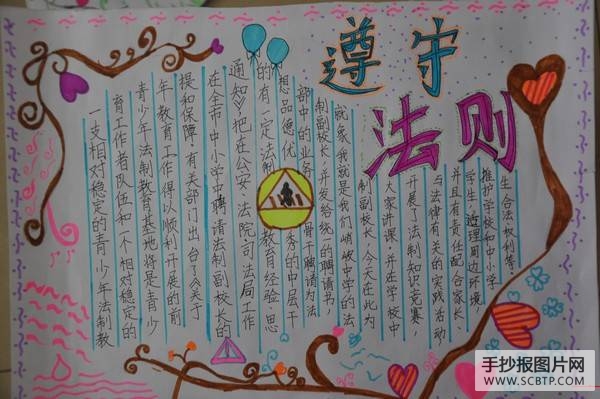 遵守
法则
生合法权利等，
维护学校和中小学
学生道理周边环境，
并且有责任配合家长、
与法律有关的实践活动
开展了法制知识竞赛，
大家讲课，并在学校中
制副校长，今天在此为
就象我就是我们峭岐中学的法
制副校长，并发给统一的聘请书，
部中的业务骨干聘请为法
想品德优秀的中层干
的有一定法制教育经验、思
通知》把在公安、法院、司法局工作
在全市中小学中聘请法制副校长的
提和保障，有关部门出台了《关于
年教育工作得以顺利开展的前
青少年法制教育基地将是青少
育工作者队伍和一个相对稳定的
一支相对稳定的青少年法制教
手抄报图片网
WWW.SCBTP.COM